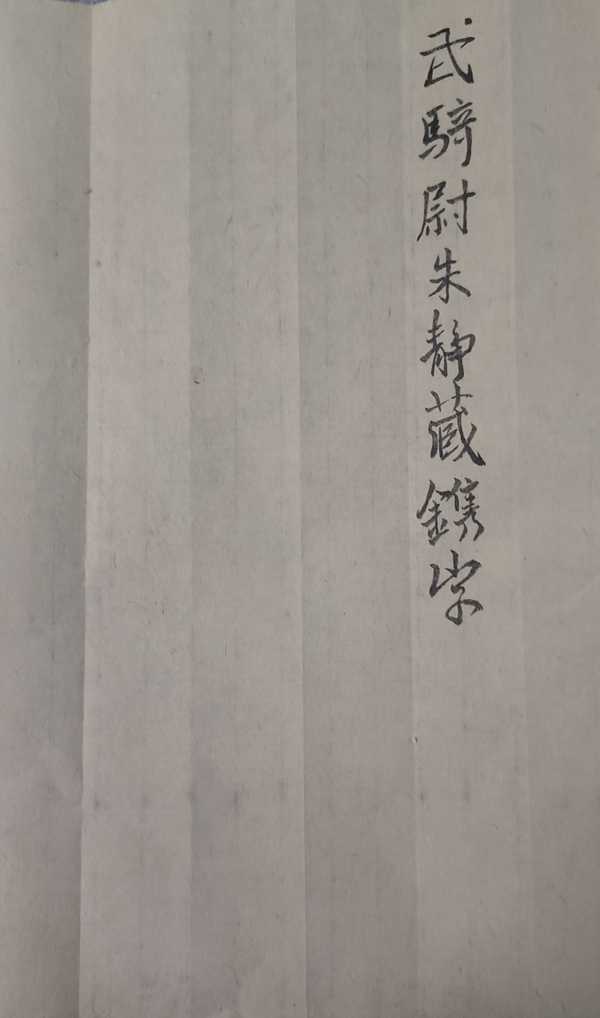 武騎尉朱靜藏鐫字